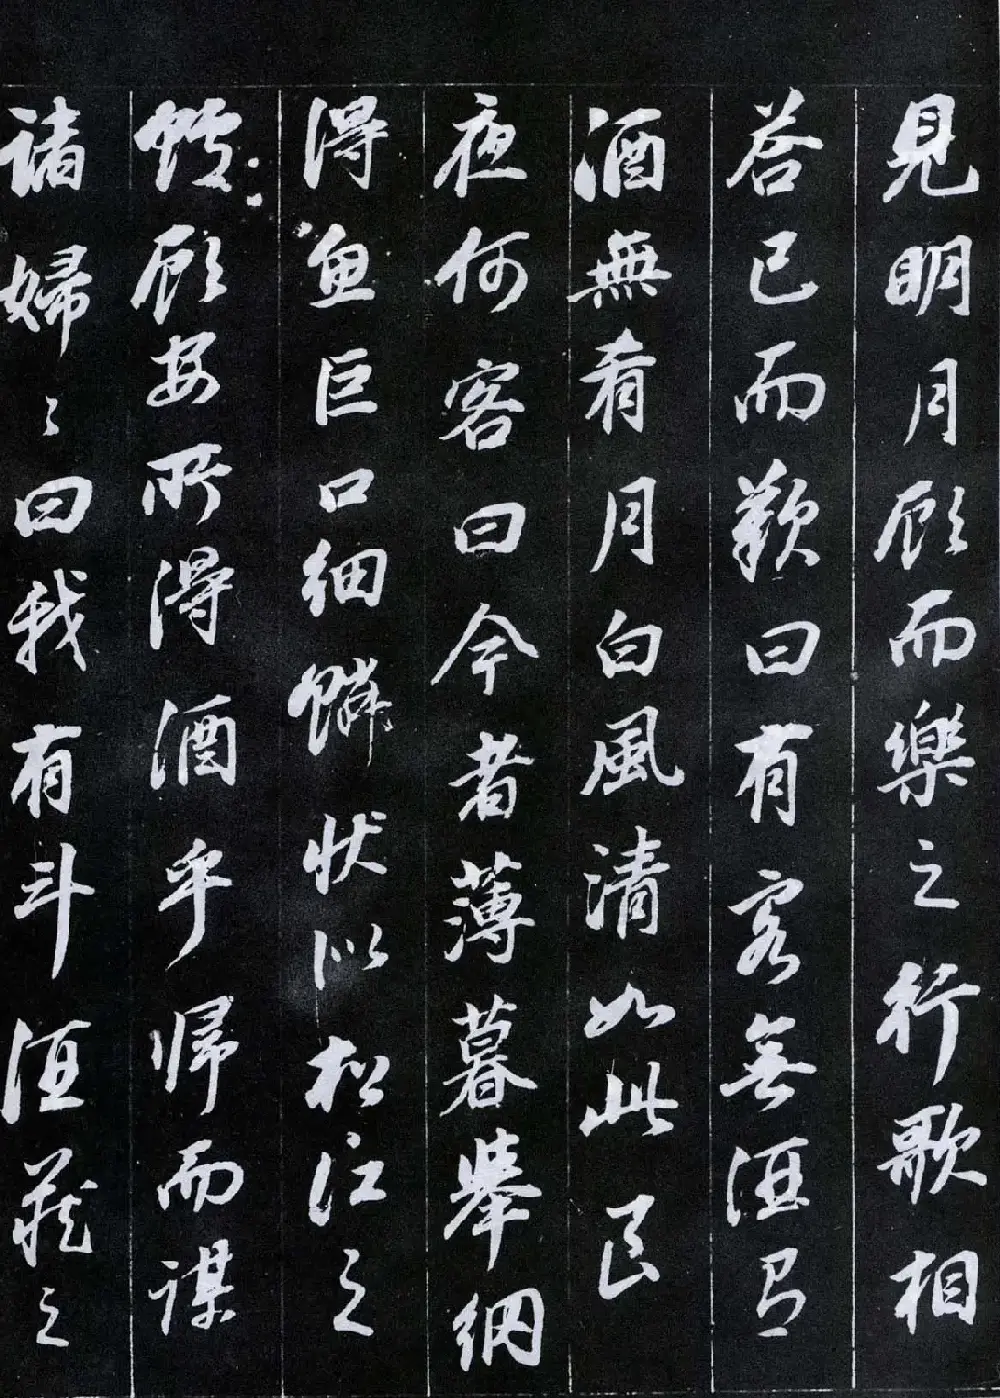 見明月顧而樂之行歌相
答已而歎曰有客無酒有
酒無肴月白風清如此良
夜何客曰今者薄暮舉網
得魚巨口細鱗狀似松江之
鱸顧安所得酒乎歸而謀
諸婦〻曰我有斗酒藏之